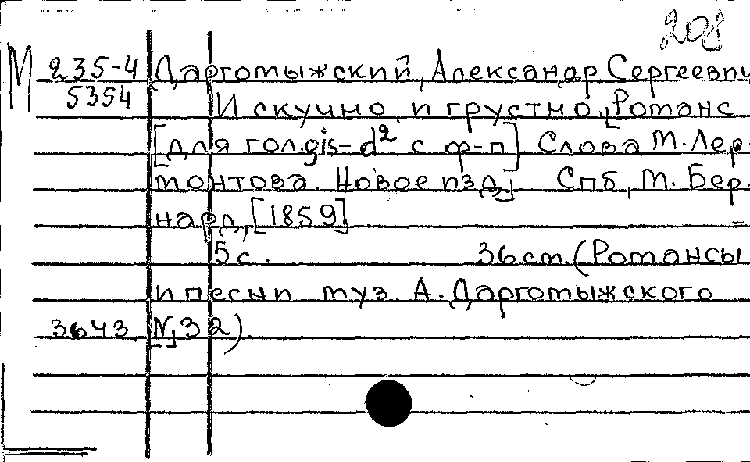 208
М 235-4 Даргомыжский, Александр Сергеевич
5354 И скучно и грустно. [Романс
[для гол. gis-d² с ф-п] Слова М. Лер-
монтова. Новое изд.] Спб, М. Бер-
нард, [1859]
5 с. 36 см. (Романсы
и песни муз. А. Даргомыжского
3643 №32).